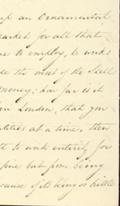 up an Ornamental
market for all that
me to employ, he works
de the most of the Skill
money; as far as it
in London, that you
tities at a time, then
te to work entirely for
price but from being
cause of its being so little